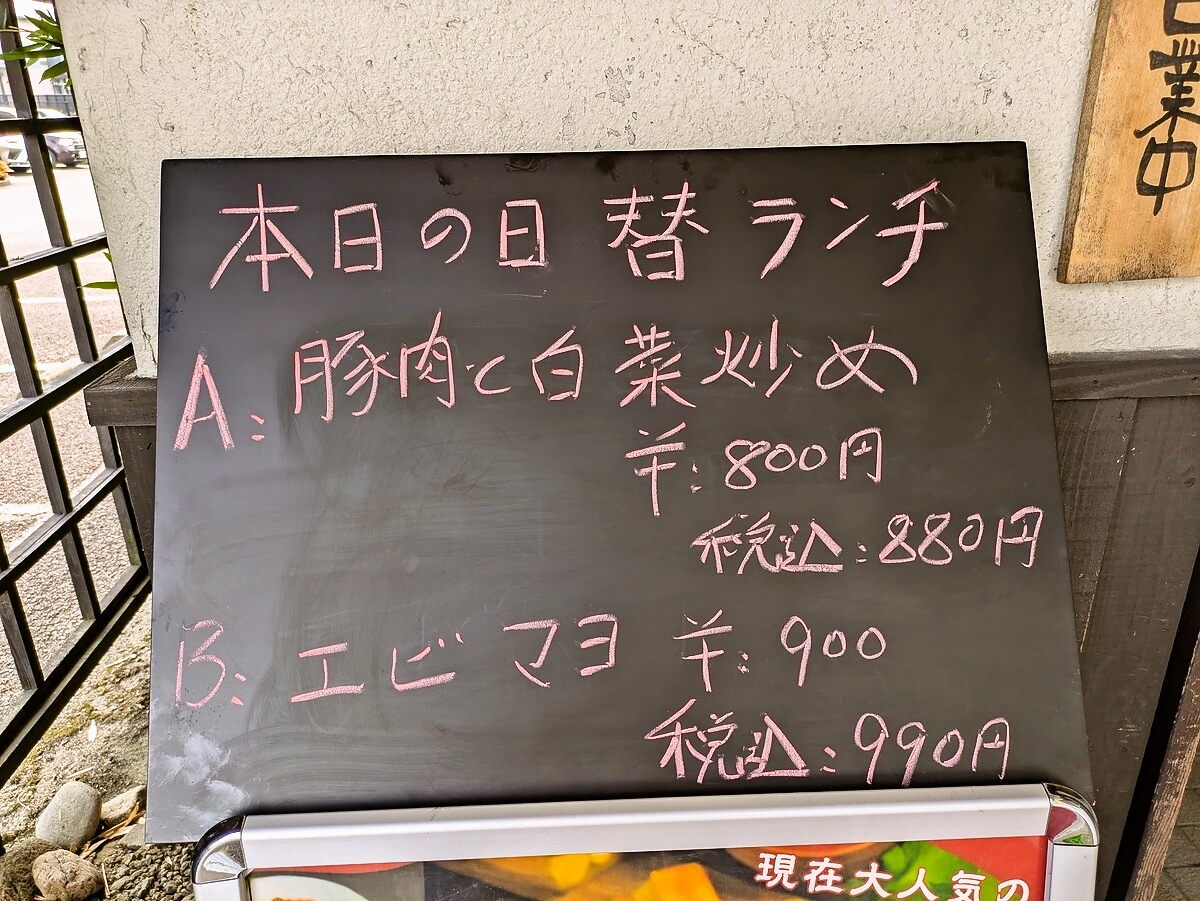 本日の日替ランチ
A:豚肉と白菜炒め
羊:800円
税込:880円
B:エビマヨ 羊:900
税込:990円
業中
現在大人気の